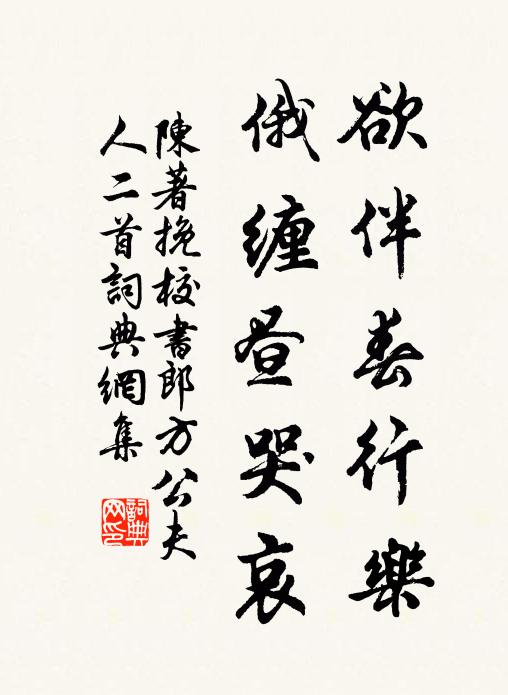 欲伴春行樂
俄纏晝哭哀
陳著挽校書郎方公夫
人二首詞典網集
詞典
网印